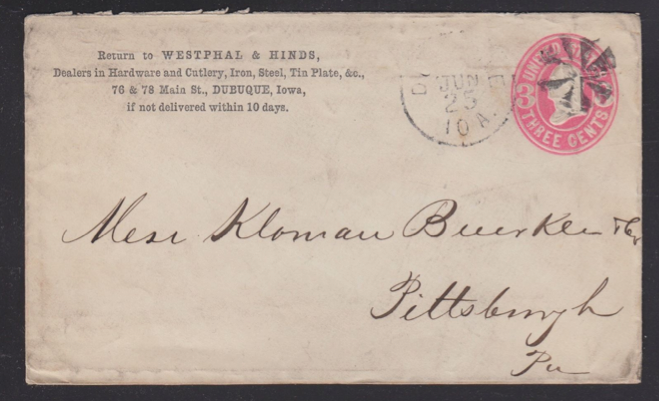 Return to WESTPHAL & HINDS,
Dealers in Hardware and Cutlery, Iron, Steel, Tin Plate, &c.,
76 & 78 Main St., DUBUQUE, Iowa,
if not delivered within 10 days.
D
JUN
25
IOA.
UNITED
3
THREE CENTS
Mess Kloman
Pittsburgh
Pa